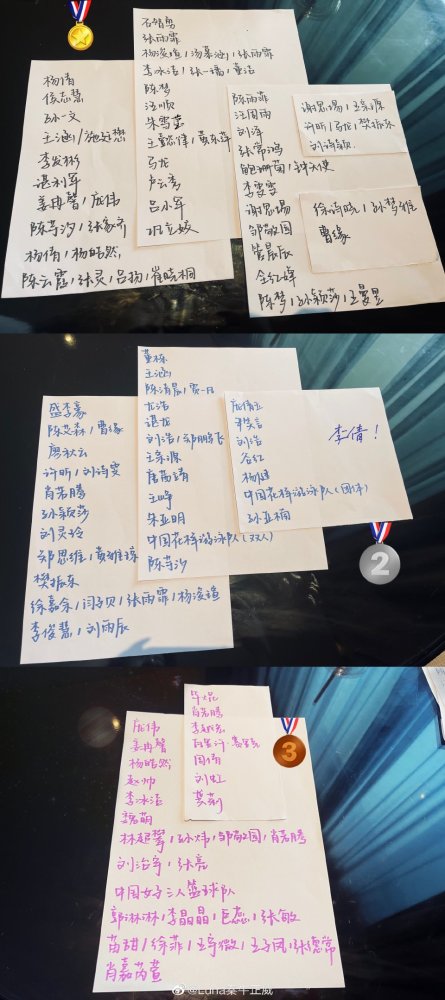 杨倩
侯志慧
孙一文
王涵/施廷懋
李发彬
谌利军
姜冉馨/庞伟
陈芋汐/张家齐
杨倩/杨皓然
陈云霞/张灵/吕扬/崔晓桐
石智勇
张雨霏
杨浚瑄/汤慕涵/张雨霏
李冰洁/张一璠/董洁
陈梦
汪顺
朱雪莹
王懿律/黄东萍
马龙
卢云秀
吕小军
汪周雨
刘洋
张常鸿
鲍珊菊/钟天使
李雯雯
谢思埸
邹敬园
管晨辰
全红婵
陈梦/孙颖莎/王曼昱
谢思埸/王宗源
许昕/马龙/樊振东
刘诗颖
徐诗晓/孙梦雅
曹缘
盛李豪
陈艾森/曹缘
廖秋云
许昕/刘诗雯
肖若腾
孙颖莎
刘灵玲
郑思维/黄雅琼
樊振东
徐嘉余/闫子贝/张雨霏/杨浚瑄
李俊慧/刘雨辰
董栋
王涵
陈清晨/贾一凡
尤浩
谌龙
刘浩/郑鹏飞
王宗源
唐茜靖
王峥
朱亚明
中国花样游泳队(双人)
陈芋汐
庞倩玉
尹笑言
刘浩
谷红
杨健
中国花样游泳队(团体)
孙亚楠
李倩!
2
庞伟
姜冉馨
杨皓然
赵帅
李冰洁
魏萌
林超攀/孙炜/邹敬园/肖若腾
刘治宇/张亮
中国女子三人篮球队
郭淋淋/李晶晶/巨蕊/张敏
苗甜/徐菲/王宇微/王子凤/张德常
肖嘉芮萱
毕焜
肖若腾
李越宏
周倩
刘虹
龚莉
3